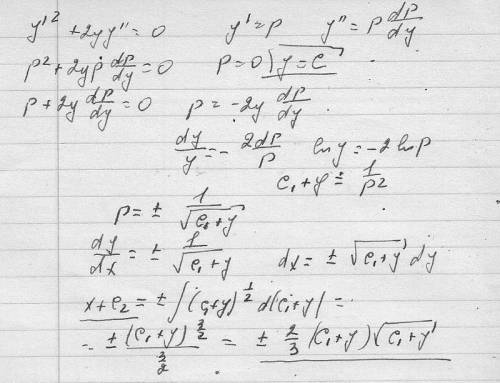 y'² + 2yy'' = 0    y' = p    y'' = p dp/dy
p² + 2yp dp/dy = 0    p = 0) y = C
p + 2y dp/dy = 0    p = -2y dp/dy
dy/y = - 2dp/p    ln y = -2 ln p
C₁ + y = 1/p²
p = ± 1/√(C₁ + y)
dy/dx = ± 1/√(C₁ + y)    dx = ± √(C₁ + y) dy
x + C₂ = ± ∫ (C₁ + y)^(1/2) d(C₁ + y) =
= ± (C₁ + y)^(3/2) / (3/2) = ± 2/3 (C₁ + y) √(C₁ + y)